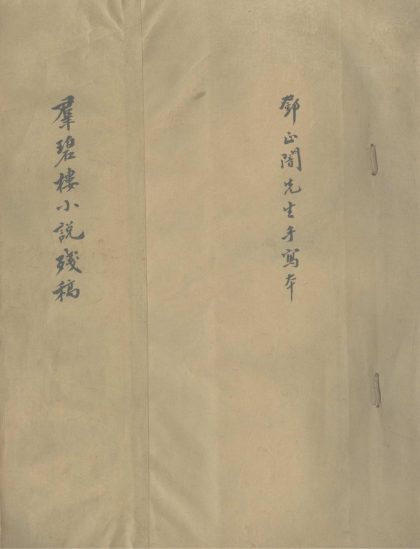 鄧正闇先生手寫本
羣碧樓小說殘稿